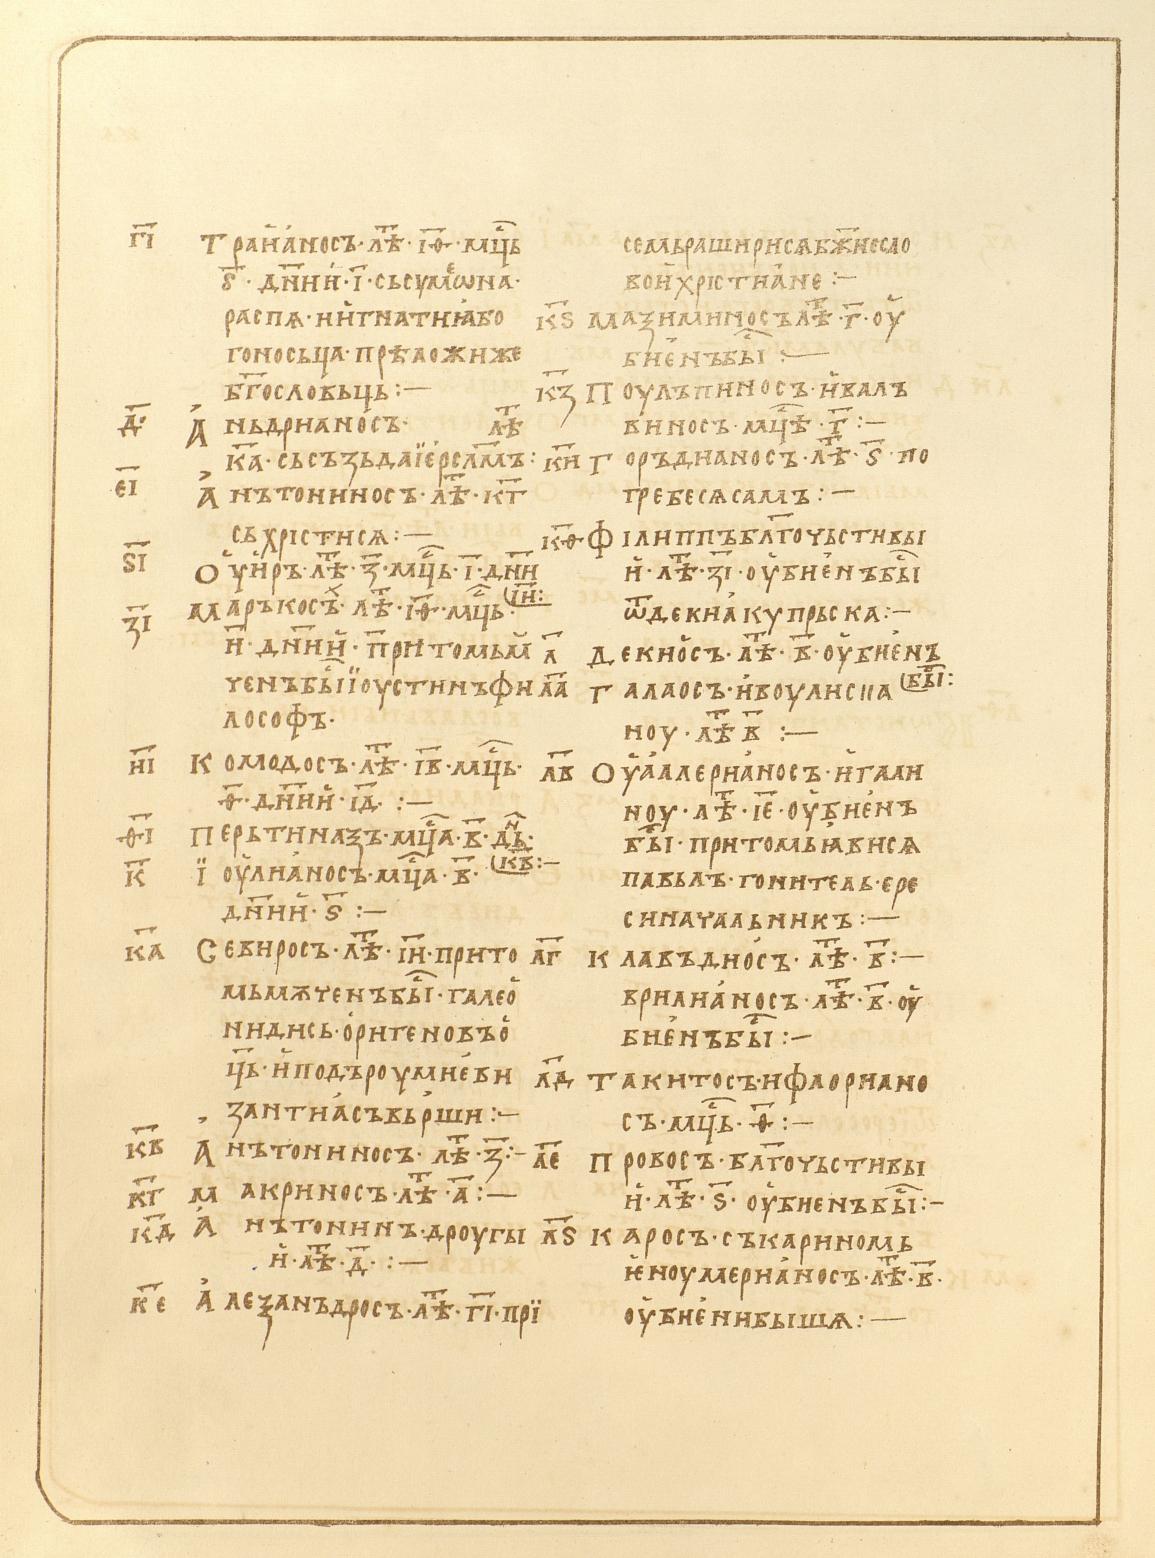 г҃і Траи́а́носъ· лѣ҃т· і҃ѳ· мц҃ь
ѕ҃· дн҃ии· і҃· сьсумео̑на·
распѧ· ии́гнатиꙗбо
гоносьца· прѣложиже
бг҃ословьць :—
д҃і А́ньдрианосъ· лѣ҃т
к҃а· сьсъзьдаїе́рслм҃ъ :
е҃і А́нътониносъ· лѣ҃т· к҃г
съхрістисѧ :—
ѕ҃і Оу̓и́ръ· лѣ҃т· з҃· мц҃ь· і҃· дн҃и
і҃и :—
з҃і Маръкосъ· лѣ҃т· і҃ѳ· мц҃ь·
и҃· дн҃ии· притомьмѫ
ченъбы́їоустинъфи
лософъ·
и҃і Комодосъ· лѣ҃т· і҃в· мц҃ь·
ѳ҃· дн҃ии· і҃д· :—
ѳ҃і Перьтиназъ· мц҃а· в҃· дн҃ь·
к҃в :—
к҃ Їоу̓лиа́носъ· мц҃а· в҃·
дн҃ии· ѕ҃ :—
к҃а Севиросъ· лѣ҃т· і҃и· прито
мьмѫченъбы́· галео̑
нидись· о́ригеновъо̑
ц҃ь· и́подъроумие́ви
зантиа́съвьр́ши :—
к҃в Анътониносъ· лѣ҃т· з҃ :—
к҃г Макриносъ· лѣ҃т· а҃ :—
к҃д А́нътонинъ· дроугы
и́· лѣ҃т· д҃· :—
к҃е А́лезанъдросъ· лѣ҃т· г҃і· прї
семьрашириsѧбж҃иесло
вои́хрістиа́не :—
к҃ѕ Мазиминосъ· лѣ҃т· г҃· оу̓
бие́нъбы́ :—
к҃з Поулъпиносъ· и́валъ
виносъ· мц҃ѣ· г҃ :—
к҃и Горъдианосъ· лѣ҃т· ѕ҃· по
гребесѧсамъ :—
к҃ѳ Філиппъблг҃очьстивы
и́· лѣ҃т· з҃і· оу̓бие́нъбы́
ѿдекиа́купрьска :—
л҃ Декио́съ· лѣ҃т· в҃· оу̓бие́нъ
бы́ :
л҃а Галлосъ· и́воулиспа
ноу· лѣ҃т в҃ :—
л҃в Оу̓а́лериа́носъ· и́гали
ноу· лѣ҃т· і҃е· оу̓бие́нъ
бы́· притомьꙗвисѧ
павьлъ· гонитель· ере
синачальникъ :—
л҃г Клавъдио́съ· лѣ҃т· в҃ :—
врилиа́носъ· лѣ҃т· в҃· оу̓
бие́нъбы́ :—
л҃д Такитосъ· ифлориано
съ· мц҃ь· ѳ҃ :—
л҃е Провосъ· блг҃очьстивы
и́· лѣ҃т· ѕ҃· оу̓биенъбы́ :—
л҃ѕ Каросъ· съкариномь
и́ноумериа́носъ· лѣ҃т· в҃·
оу̓бие́нибышѧ :—